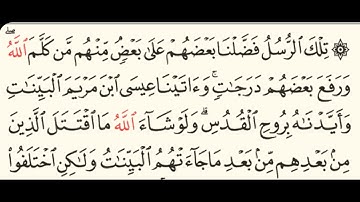 ۞ تِلْكَ ٱلرُّسُلُ فَضَّلْنَا بَعْضَهُمْ عَلَىٰ بَعْضٍ مِّنْهُم مَّن كَلَّمَ ٱللَّهُ
وَرَفَعَ بَعْضَهُمْ دَرَجَٰتٍ ۚ وَءَاتَيْنَا عِيسَى ٱبْنَ مَرْيَمَ ٱلْبَيِّنَٰتِ
وَأَيَّدْنَٰهُ بِرُوحِ ٱلْقُدُسِ ۗ وَلَوْ شَآءَ ٱللَّهُ مَا ٱقْتَتَلَ ٱلَّذِينَ
مِنۢ بَعْدِهِم مِّنۢ بَعْدِ مَا جَآءَتْهُمُ ٱلْبَيِّنَٰتُ وَلَٰكِنِ ٱخْتَلَفُوا۟